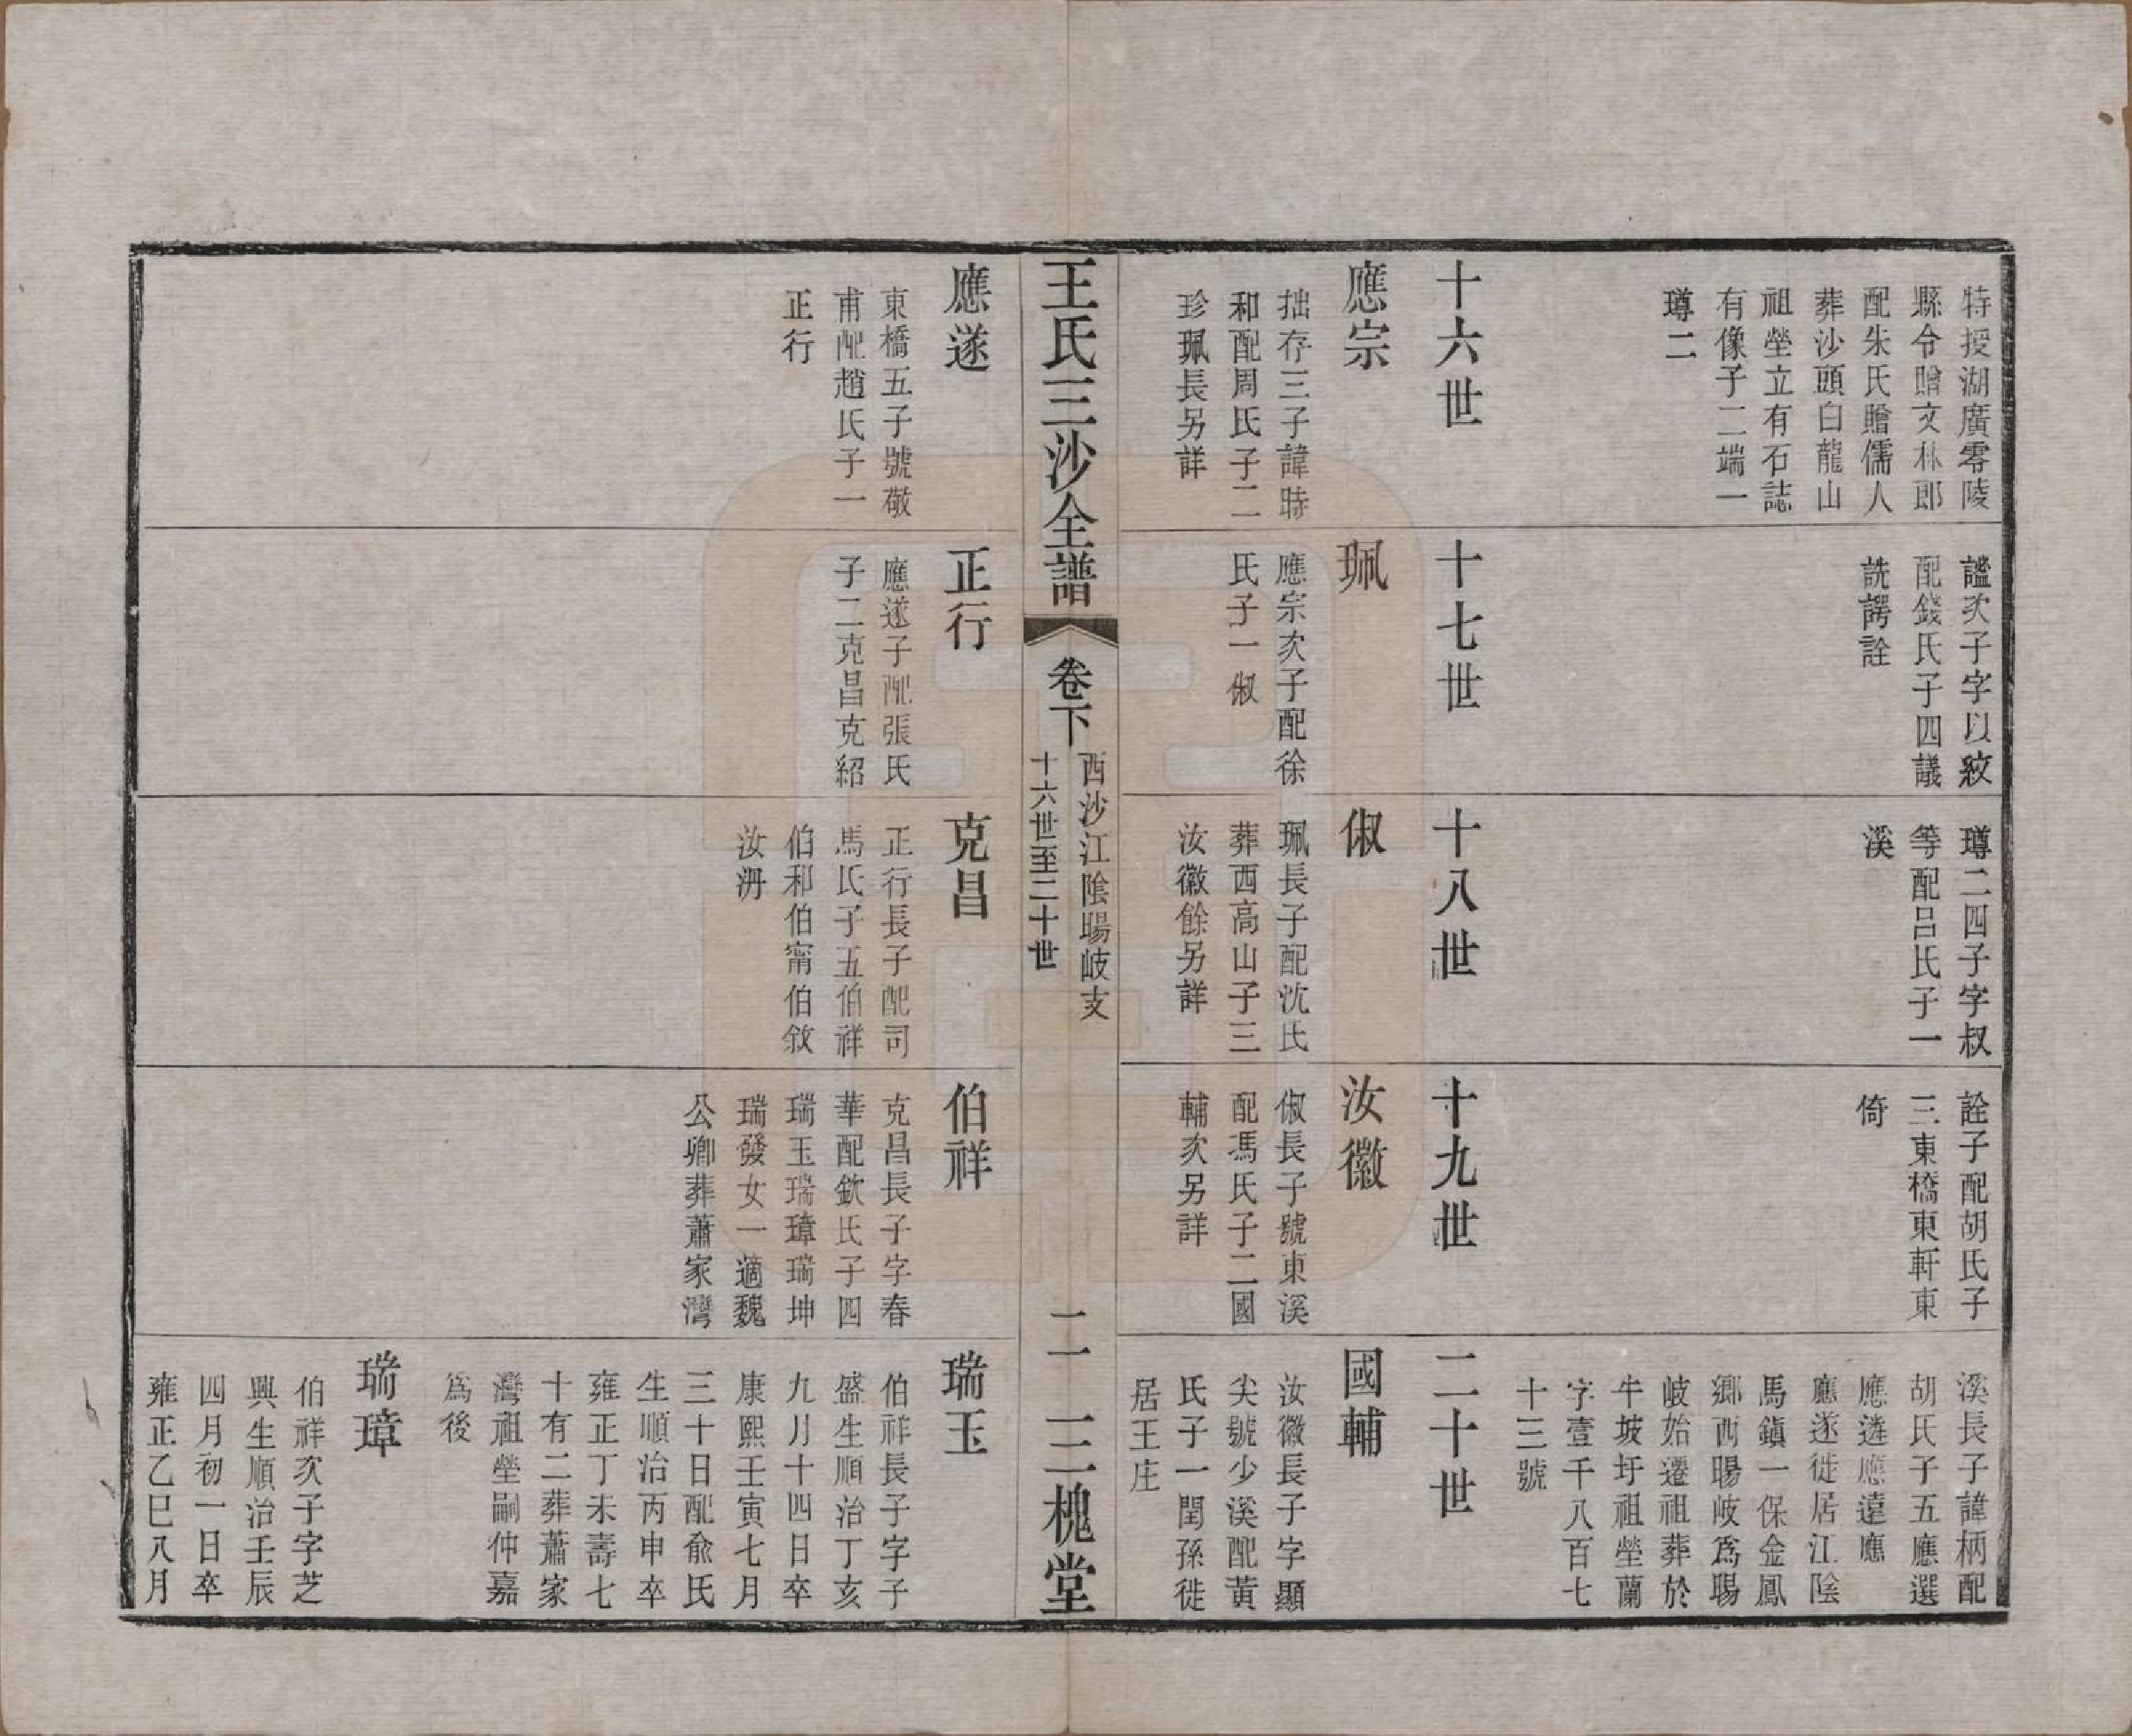 特授湖廣零陵
縣令贈文林郎
配朱氏贈儒人
葬沙頭白龍山
祖塋立有石誌
有像子二端一
璹二
謐次子字以紋
配錢氏子四議
詵諤詮
璹二四子字叔
等配呂氏子一
溪
詮子配胡氏子
三東橋東軒東
倚
溪長子諱柄配
胡氏子五應選
應遴應遠應
應遂徙居江陰
馬鎮一保金鳳
鄉西暘岐爲暘
岐始遷祖葬於
牛坡圩祖塋蘭
字壹千八百七
十三號
十六世
十七世
十八世
十九世
二十世
應宗
拙存三子諱時
和配周氏子二
珍珮長另詳
珮
應宗次子配徐
氏子一俶
俶
珮長子配沈氏
葬西高山子三
汝徽餘另詳
汝徽
俶長子號東溪
配馮氏子二國
輔次另詳
國輔
汝徽長子字顯
尖號少溪配黃
氏子一閏孫徙
居王庄
王氏三沙全譜
卷下
西沙江陰暘岐支
十六世至二十世
二一
三槐堂
應遂
東橋五子號敬
甫配趙氏子一
正行
正行
應遂子配張氏
子二克昌克紹
克昌
正行長子配司
馬氏子五伯祥
伯和伯甯伯敘
汝洀
伯祥
克昌長子字春
華配欽氏子四
瑞玉瑞璋瑞坤
瑞發女一適魏
公卿葬蕭家灣
瑞玉
伯祥長子字子
盛生順治丁亥
九月十四日卒
康熙壬寅七月
三十日配俞氏
生順治丙申卒
雍正丁未壽七
十有二葬蕭家
灣祖塋嗣仲嘉
爲後
瑞璋
伯祥次子字芝
興生順治壬辰
四月初一日卒
雍正乙巳八月